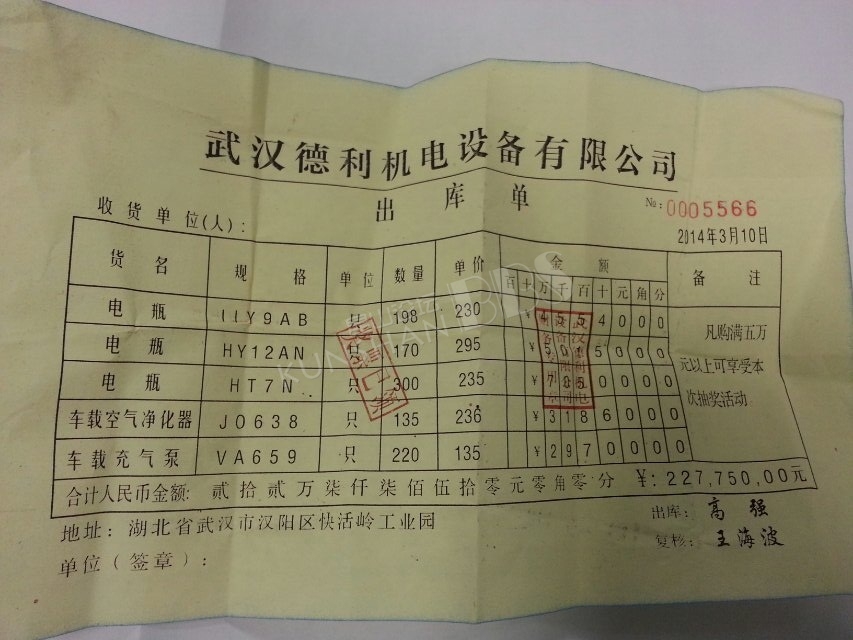 武汉德利机电设备有限公司
出库单
№:0005566
收货单位(人):
2014年3月10日
货名 规格 单位 数量 单价 金额 备注
百 十 万 千 百 十 元 角 分
电瓶 HY9AB 只 198 230 ¥ 4 5 5 4 0 0 0
电瓶 HY12AN 只 170 295 ¥ 5 0 0 0
电瓶 HT7N 只 300 235 ¥ 7 0 5 0 0 0 0
车载空气净化器 J0638 只 135 236 ¥ 3 1 8 6 0 0 0
车载充气泵 VA659 只 220 135 ¥ 2 9 7 0 0 0 0
凡购满五万
元以上可享受本
次抽奖活动
合计人民币金额: 贰拾贰万柒仟柒佰伍拾零元零角零分 ¥: 227,750,00元
地址: 湖北省武汉市汉阳区快活岭工业园
出库: 高强
复核: 王海波
单位(签章):
KUNSHAN BDS